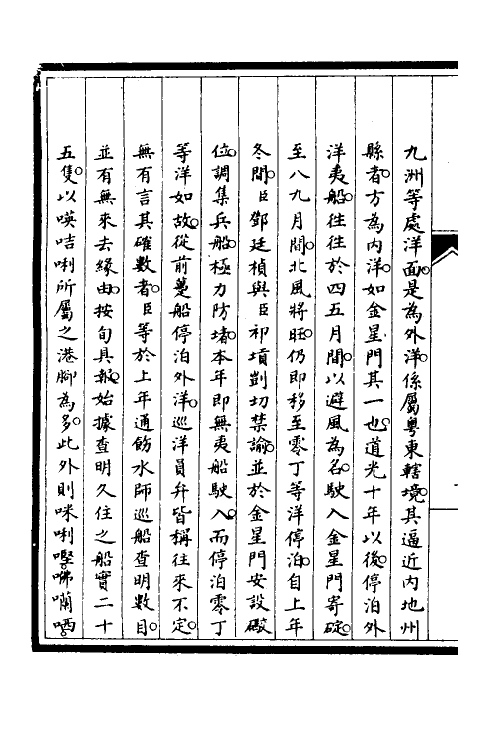 九洲等處洋面。是為外洋。係屬粵東轄境。其逼近內地州
縣者。方為內洋。如金星門其一也。道光十年以後。停泊外
洋夷船。往往於四五月間。以避風為名。駛入金星門寄碇。
至八九月間。北風將旺。仍即移至零丁等洋停泊。自上年
冬間。臣鄧廷楨與臣祁𡎴剴切禁諭。並於金星門安設礮
位。調集兵船。極力防堵。本年即無夷船駛入。而停泊零丁
等洋如故。從前躉船停泊外洋。巡洋員弁皆稱往來不定。
無有言其確數者。臣等於上年通飭水師巡船查明數目。
並有無來去緣由。按旬具報。始據查明久住之船實二十
五隻。以𠸄咭唎所屬之港腳為多。此外則咪唎𠼤。㗘囒哂。